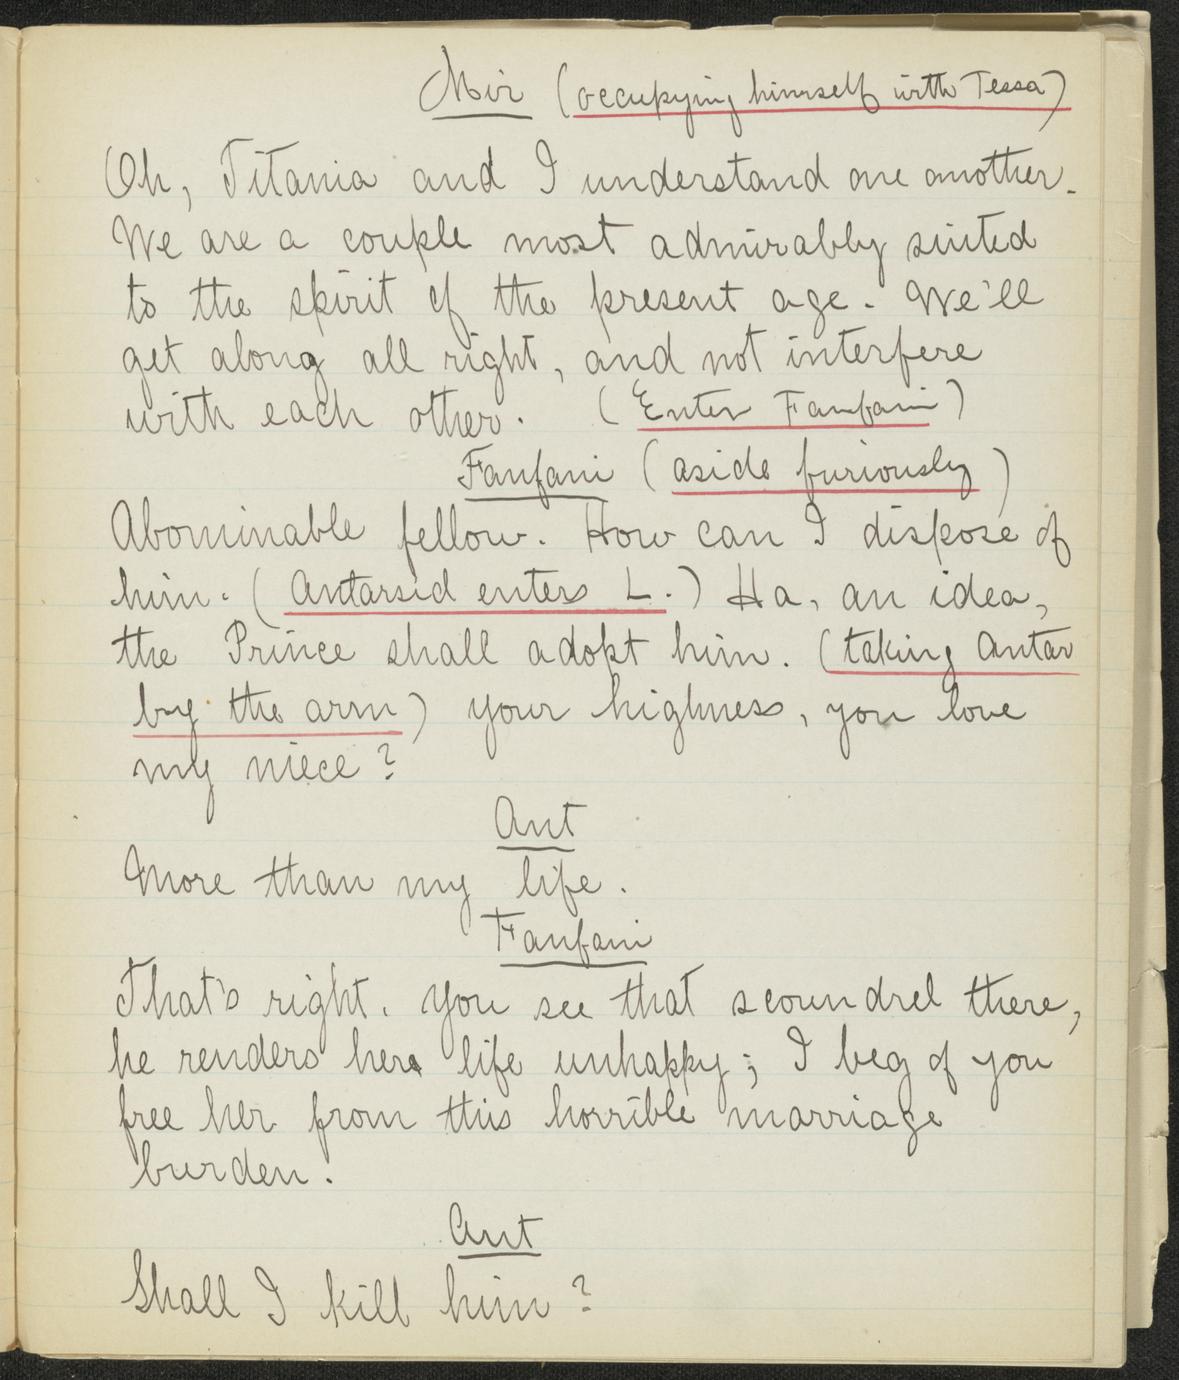 Mir (occupying himself with Tessa)
Oh, Titania and I understand one another.
We are a couple most admirably suited
to the spirit of the present age. We'll
get along all right, and not interfere
with each other. (Enter Fanfani)
Fanfani (aside furiously)
Abominable fellow. How can I dispose of
him. (Antarsid enters L.) Ha, an idea,
the Prince shall adopt him. (taking Antar
by the arm) your highness, you love
my niece?
Ant
More than my life.
Fanfani
That's right. You see that scoundrel there,
he renders her life unhappy; I beg of you
free her from this horrible marriage
burden.
Ant
Shall I kill him?